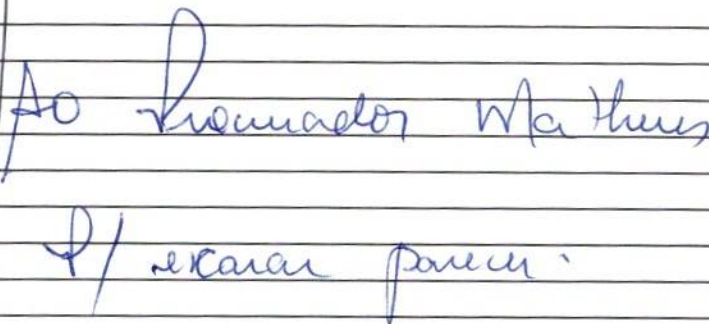 Ao Procurador Matheus
P/ exarar parecer.